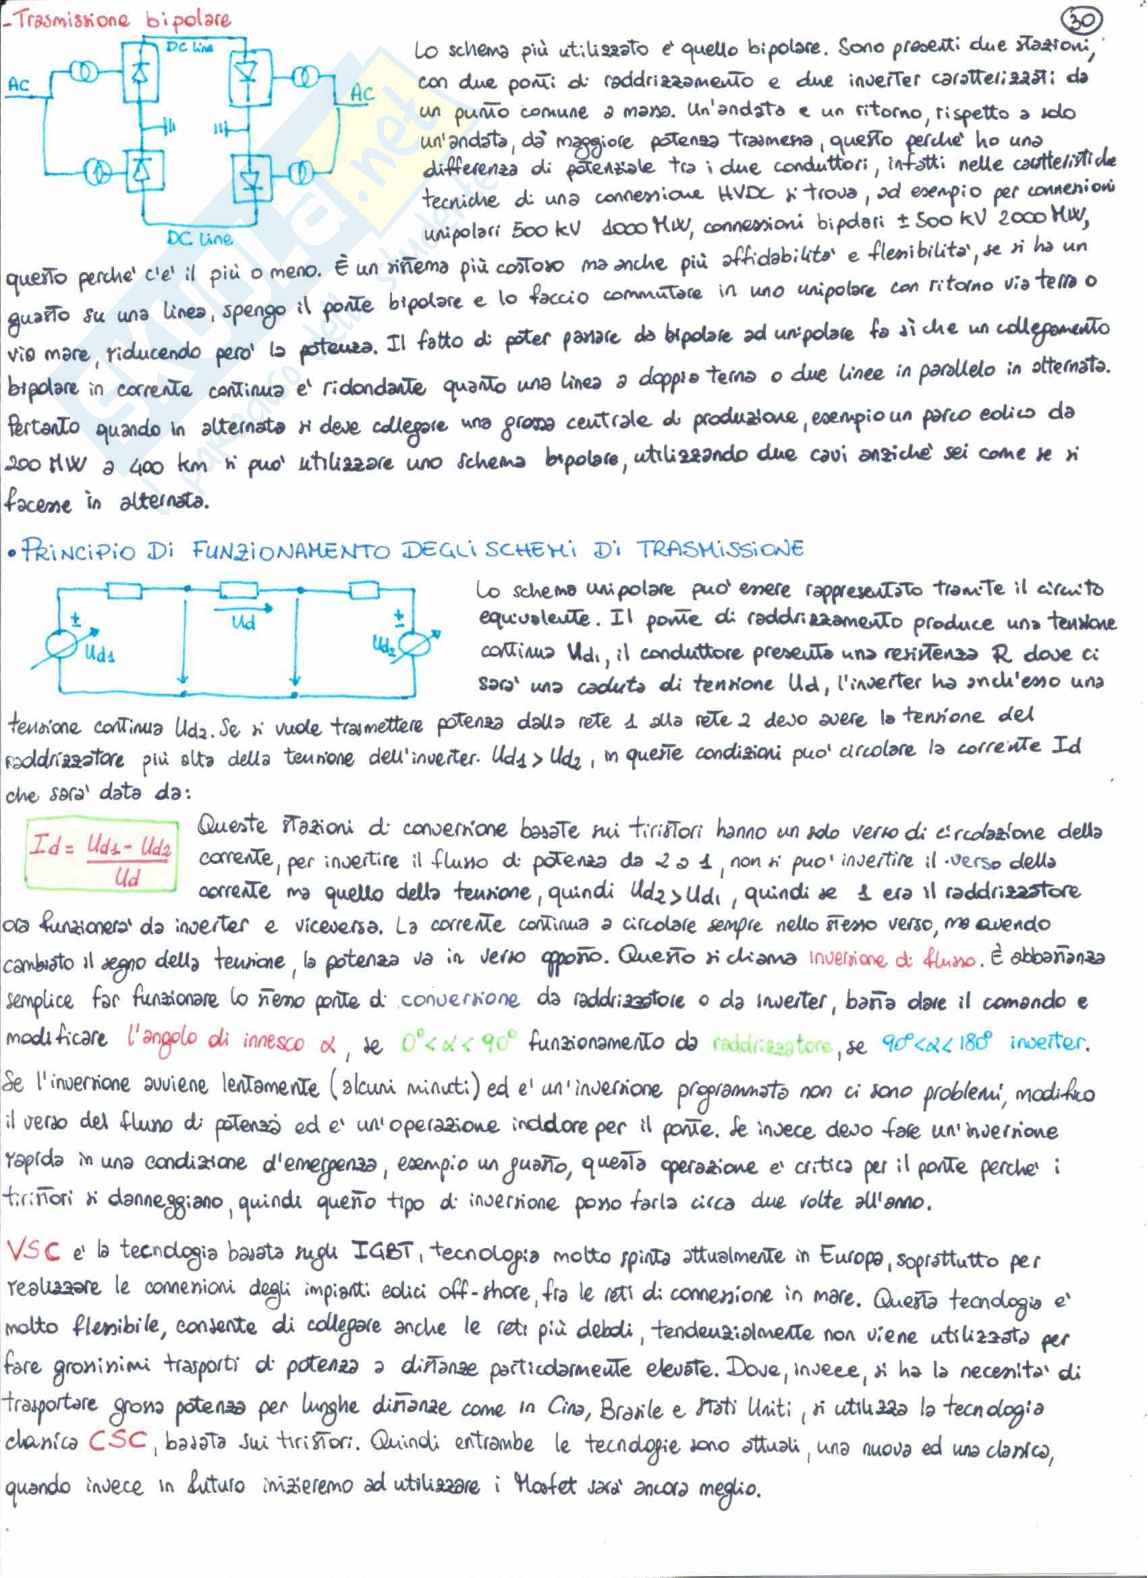 - Trasmissione bipolare
30
DC Line
AC
AC
DC Line
Lo schema più utilizzato e' quello bipolare. Sono presenti due stazioni,
con due ponti di raddrizzamento e due inverter caratterizzati da
un punto comune a massa. Un'andata e un ritorno, rispetto a solo
un'andata, dà maggiore potenza trasmessa, questo perche' ho una
differenza di potenziale tra i due conduttori, infatti nelle caratteristiche
tecniche di una connessione HVDC si trova, ad esempio per connessioni
unipolari 500 kV 1000 MW, connessioni bipolari ± 500 kV 2000 MW,
questo perche' c'e' il più o meno. È un sistema più costoso ma anche più affidabilita' e flessibilita', se si ha un
guasto su una linea, spengo il ponte bipolare e lo faccio commutare in uno unipolare con ritorno via terra o
via mare, riducendo pero' la potenza. Il fatto di poter passare da bipolare ad unipolare fa sì che un collegamento
bipolare in corrente continua e' ridondante quanto una linea a doppia terna o due linee in parallelo in alternata.
Pertanto quando in alternata si deve collegare una grossa centrale di produzione, esempio un parco eolico da
200 MW a 400 km si puo' utilizzare uno schema bipolare, utilizzando due cavi anziche' sei come se si
facesse in alternata.
• PRINCIPIO DI FUNZIONAMENTO DEGLI SCHEMI DI TRASMISSIONE
± Ud1
Ud
± Ud2
Lo schema unipolare puo' essere rappresentato tramite il circuito
equivalente. Il ponte di raddrizzamento produce una tensione
continua Ud1, il conduttore presenta una resistenza R dove ci
sara' una caduta di tensione Ud, l'inverter ha anch'esso una
tensione continua Ud2. Se si vuole trasmettere potenza dalla rete 1 alla rete 2 devo avere la tensione del
raddrizzatore più alta della tensione dell'inverter. Ud1 > Ud2, in queste condizioni puo' circolare la corrente Id
che sara' data da:
Id = Ud1 - Ud2 / Ud
Queste stazioni di conversione basate sui tiristori hanno un solo verso di circolazione della
corrente, per invertire il flusso di potenza da 2 a 1, non si puo' invertire il verso della
corrente ma quello della tensione, quindi Ud2 > Ud1, quindi se 1 era il raddrizzatore
ora funzionera' da inverter e viceversa. La corrente continua a circolare sempre nello stesso verso, ma avendo
cambiato il segno della tensione, la potenza va in verso opposto. Questo si chiama inversione di flusso. È abbastanza
semplice far funzionare lo stesso ponte di conversione da raddrizzatore o da inverter, basta dare il comando e
modificare l'angolo di innesco α, se 0° < α < 90° funzionamento da raddrizzatore, se 90° < α < 180° inverter.
Se l'inversione avviene lentamente (alcuni minuti) ed e' un'inversione programmata non ci sono problemi, modifico
il verso del flusso di potenza ed e' un'operazione indolore per il ponte. Se invece devo fare un'inversione
rapida in una condizione d'emergenza, esempio un guasto, questa operazione e' critica per il ponte perche' i
tiristori si danneggiano, quindi questo tipo di inversione posso farla circa due volte all'anno.
VSC e' la tecnologia basata sugli IGBT, tecnologia molto spinta attualmente in Europa, soprattutto per
realizzare le connessioni degli impianti eolici off-shore, fra le reti di connessione in mare. Questa tecnologia e'
molto flessibile, consente di collegare anche le reti più deboli, tendenzialmente non viene utilizzata per
fare grossissimi trasporti di potenza a distanze particolarmente elevate. Dove, invece, si ha la necessita' di
trasportare grossa potenza per lunghe distanze come in Cina, Brasile e Stati Uniti, si utilizza la tecnologia
classica CSC, basata sui tiristori. Quindi entrambe le tecnologie sono attuali, una nuova ed una classica,
quando invece in futuro inizieremo ad utilizzare i Mosfet sara' ancora meglio.